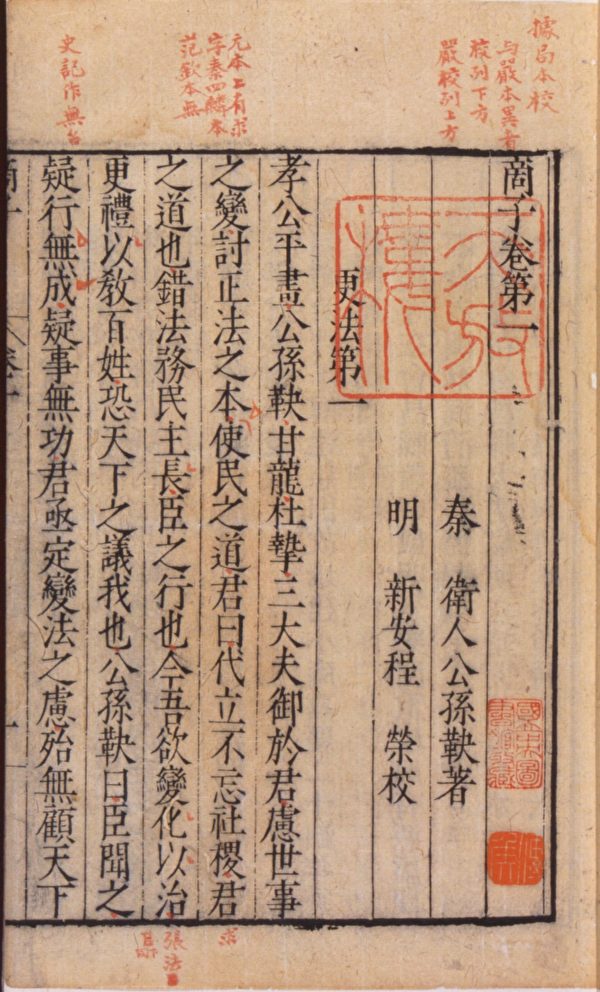 據局本校
与嚴本異者
校列下方
嚴校列上方
元本上有求
字秦四麟本
范欽本無
史記作無名
商子卷第一
秦　衛人公孫鞅著
明　新安程　榮校
更法第一
孝公平畫公孫鞅甘龍杜摯三大夫御於君慮世事
之變討正法之本使民之道君曰代立不忘社稷君
之道也錯法務民主長臣之行也今吾欲變化以治
更禮以敎百姓恐天下之議我也公孫鞅曰臣聞之
疑行無成疑事無功君亟定變法之慮殆無顧天下
商子
卷一
一
求